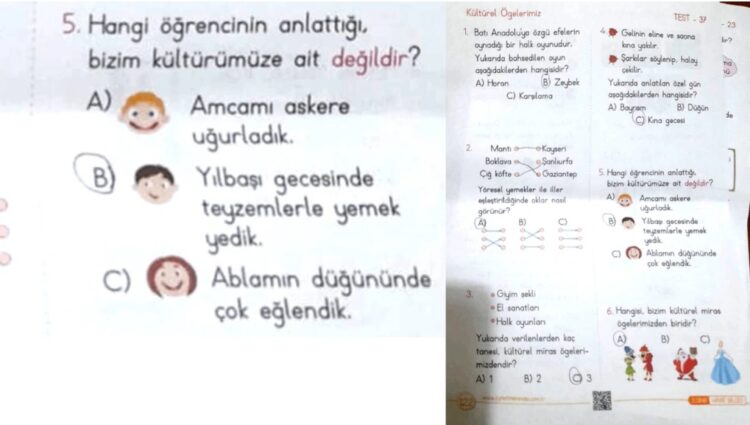 5. Hangi öğrencinin anlattığı,
bizim kültürümüze ait değildir?
A) Amcamı askere
uğurladık.
B) Yılbaşı gecesinde
teyzemlerle yemek
yedik.
C) Ablamın düğününde
çok eğlendik.
Kültürel Ögelerimiz
TEST - 37
1. Batı Anadolu'ya özgü efelerin
oynadığı bir halk oyunudur.
Yukarıda bahsedilen oyun
aşağıdakilerden hangisidir?
A) Horon B) Zeybek
C) Karşılama
2.
Mantı Kayseri
Baklava Şanlıurfa
Çiğ köfte Gaziantep
Yöresel yemekler ile iller
eşleştirildiğinde oklar nasıl
görünür?
A) B) C)
3.
Giyim şekli
El sanatları
Halk oyunları
Yukarıda verilenlerden kaç
tanesi, kültürel miras ögeleri-
mizdendir?
A) 1 B) 2 C) 3
4. Gelinin eline ve sağına
kına yakılır.
Şarkılar söylenip, halay
çekilir.
Yukarıda anlatılan özel gün
aşağıdakilerden hangisidir?
A) Bayram B) Düğün
C) Kına gecesi
5. Hangi öğrencinin anlattığı,
bizim kültürümüze ait değildir?
A) Amcamı askere
uğurladık.
B) Yılbaşı gecesinde
teyzemlerle yemek
yedik.
C) Ablamın düğününde
çok eğlendik.
6. Hangisi, bizim kültürel miras
ögelerimizden biridir?
A) B) C)
- 23